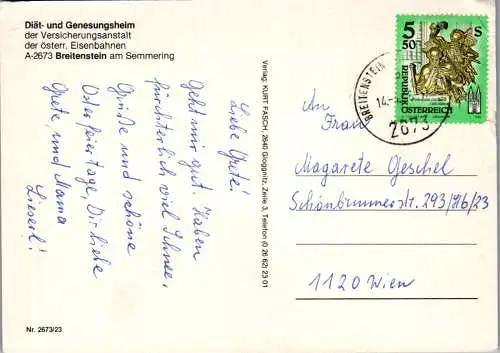 Diät- und Genesungsheim
der Versicherungsanstalt
der österr. Eisenbahnen
A-2673 Breitenstein am Semmering
Liebe Grete!
Geht mir gut. Haben
fürchterlich viel Schnee,
Grüße und schöne
Osterfeiertage, Dir liebe
Grete, und Mama
Lieserl!
Nr. 2673/23
Verlag: KURT FASCH, 2640 Gloggnitz, Zeile 3, Telefon (0 26 62) 23 01
BREITENSTEIN
14.
2673
5 50 S
REPUBLIK
ÖSTERREICH
An
Frau
Magarete Geschel
Schönbrunnerstr. 293/16/23
1120 Wien